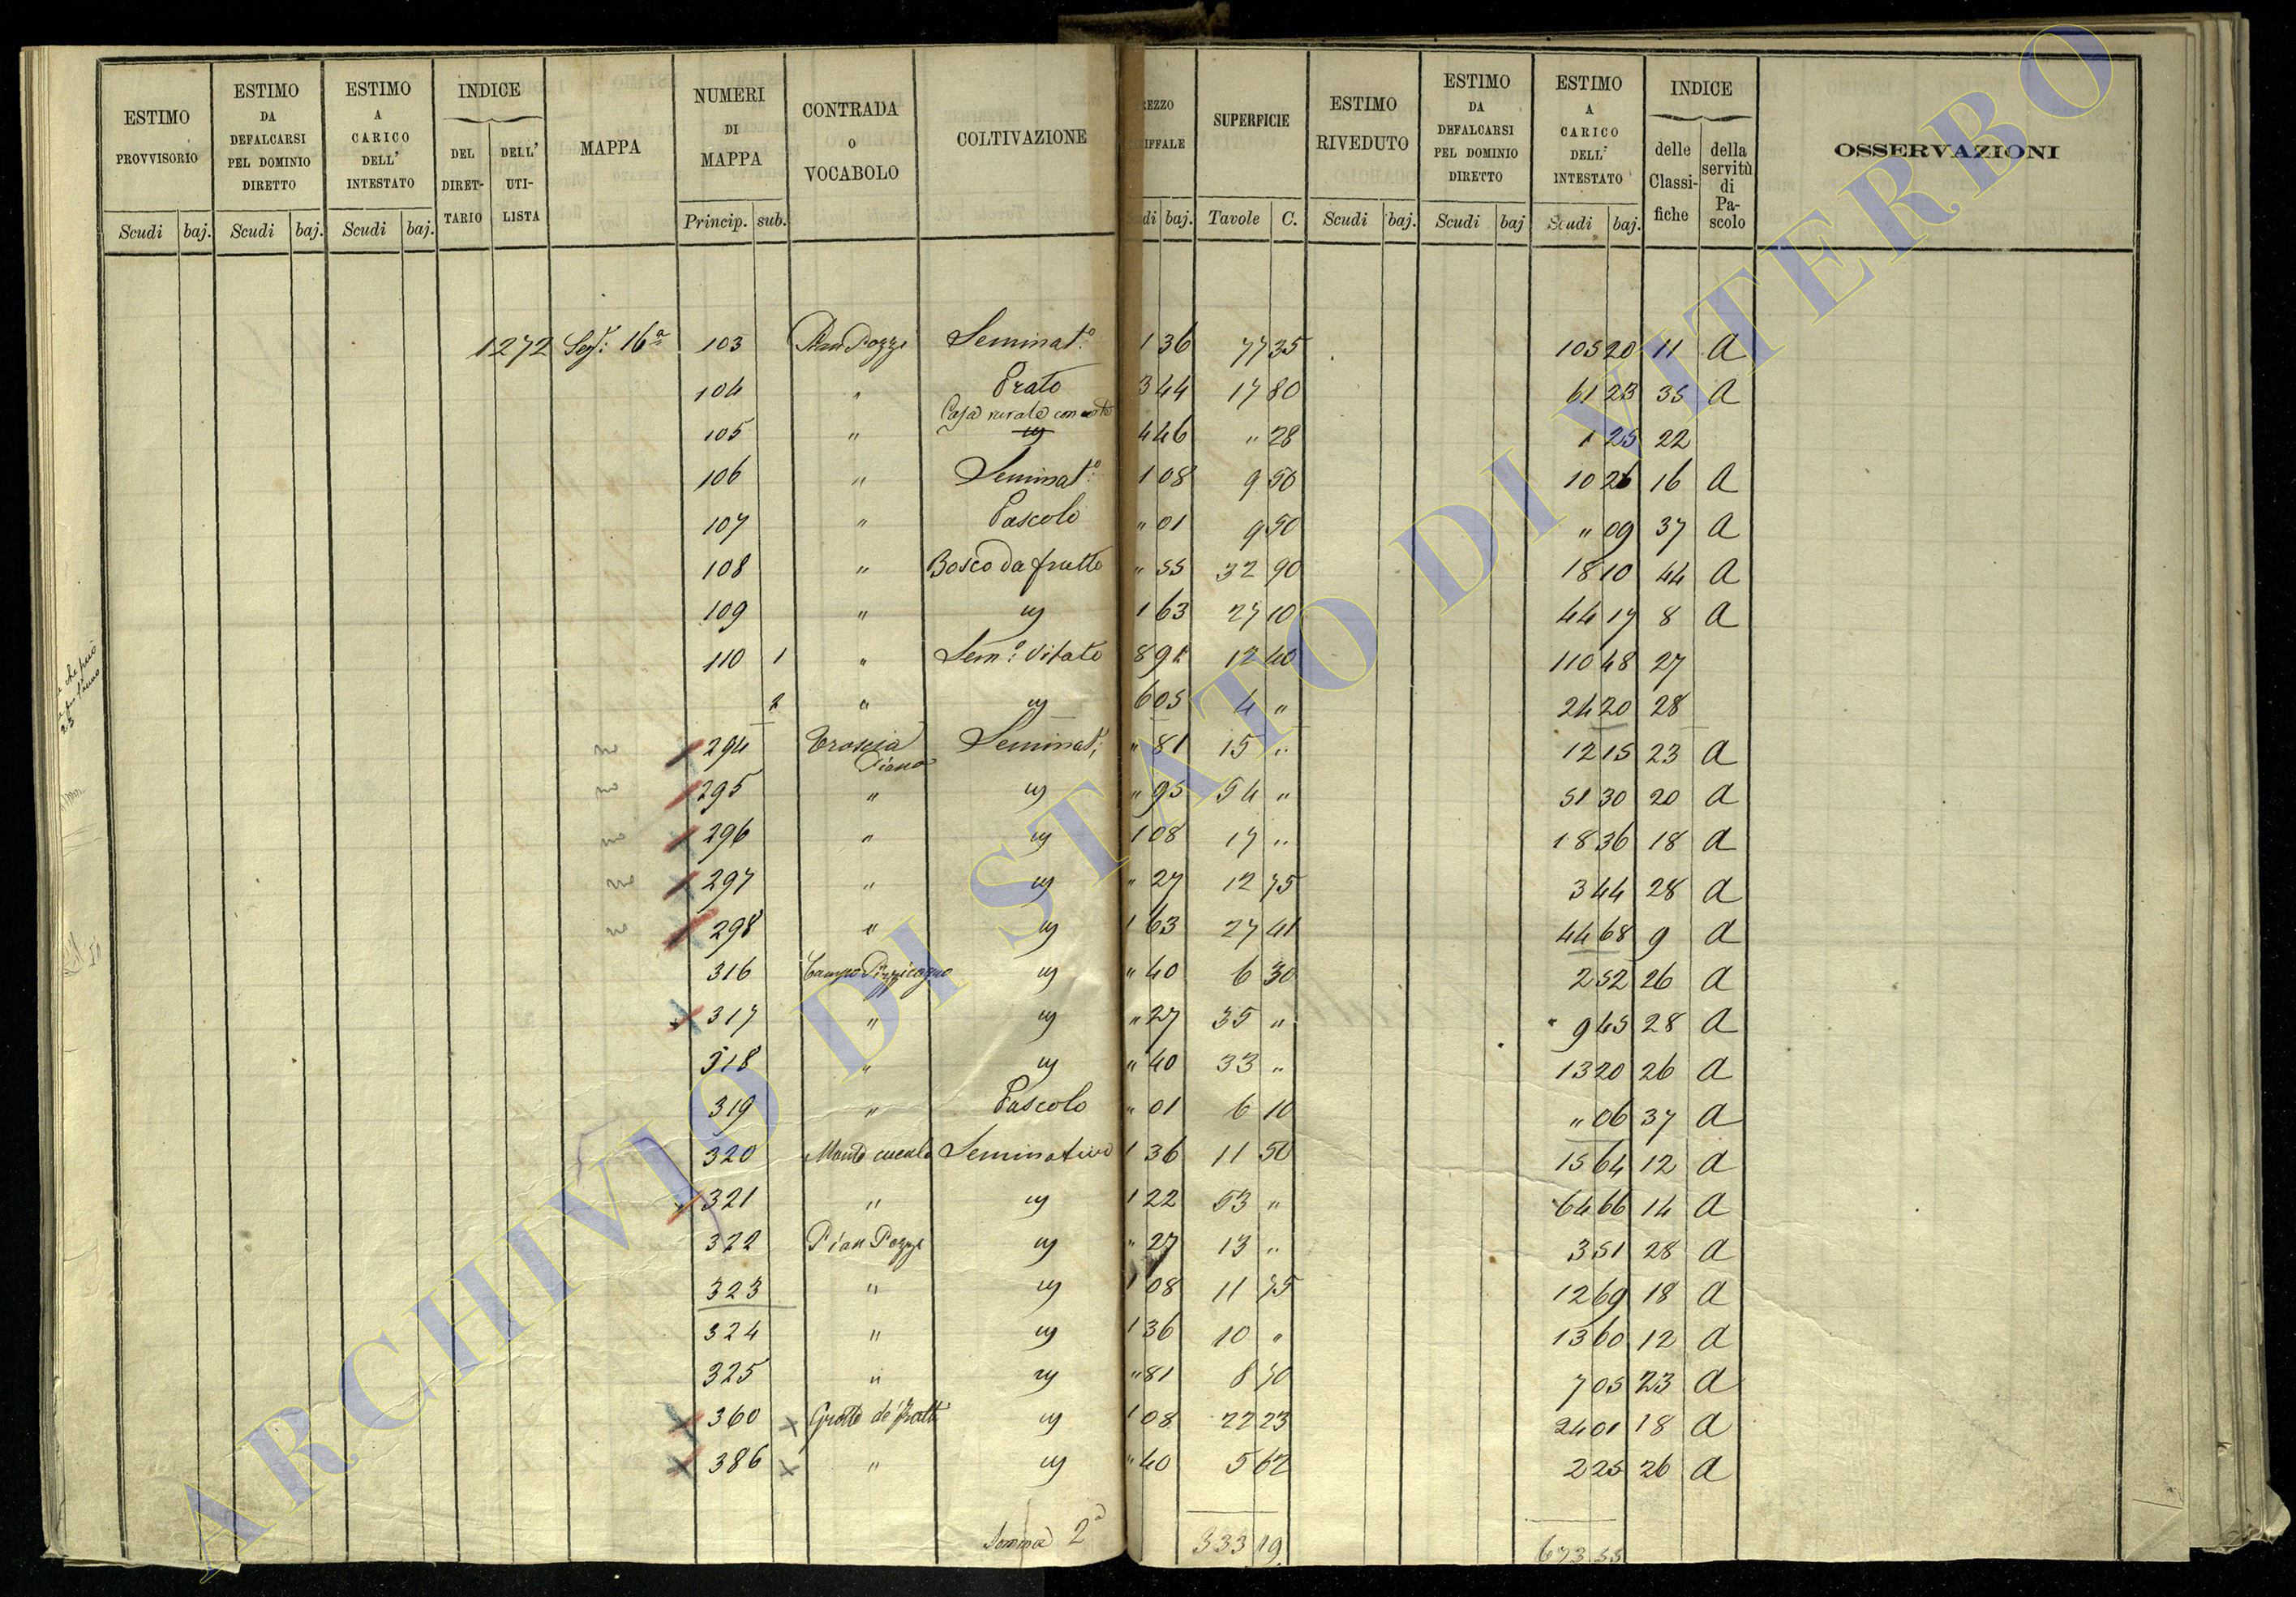 ESTIMO PROVVISORIO Scudi baj. | ESTIMO DA DEFALCARSI PEL DOMINIO DIRETTO Scudi baj. | ESTIMO A CARICO DELL' INTESTATO Scudi baj. | INDICE DEL DIRETTARIO DELL' UTILISTA | MAPPA | NUMERI DI MAPPA Princip. sub. | CONTRADA O VOCABOLO | COLTIVAZIONE | REZZO IFFALE di baj. | SUPERFICIE Tavole C. | ESTIMO RIVEDUTO Scudi baj. | ESTIMO DA DEFALCARSI PEL DOMINIO DIRETTO Scudi baj | ESTIMO A CARICO DELL' INTESTATO Scudi baj. | INDICE delle Classifiche della servitù di Pascolo | OSSERVAZIONI
1272 Sez.: 16a 103 Pian Pozzi Seminat.o 1 36 77 35 105 20 11 A
104 " Prato 3 44 17 80 61 23 35 A
105 " Casa rurale con corte 4 46 " 28 1 25 22
106 " Seminat.o 1 08 9 50 10 26 16 A
107 " Pascolo " 01 9 50 " 09 37 A
108 " Bosco da frutto " 55 32 90 18 10 44 A
109 " id 1 63 27 10 44 17 8 A
110 1 " Sem.o Vitato 8 91 12 40 110 48 27
2 " id 6 05 4 " 24 20 28
294 Troscia Piano Seminat. " 81 15 " 12 15 23 A
295 " id " 95 54 " 51 30 20 A
296 " id 1 08 17 " 18 36 18 A
297 " id " 27 12 75 3 44 28 A
298 " id 1 63 27 41 44 68 9 A
316 Campo Pizzicagno id " 40 6 30 2 52 26 A
317 " id " 27 35 " 9 45 28 A
318 " id " 40 33 " 13 20 26 A
319 " Pascolo " 01 6 10 " 06 37 A
320 Monte cucul Seminativo 1 36 11 50 15 64 12 A
321 " id 1 22 53 " 64 66 14 A
322 Pian Pozzi id " 27 13 " 3 51 28 A
323 " id 1 08 11 75 12 69 18 A
324 " id 1 36 10 " 13 60 12 A
325 " id " 81 8 70 7 05 23 A
360 Grotte de' Frati id 1 08 22 23 24 01 18 A
386 " id " 40 5 62 2 25 26 A
Somma 2a 333 19 673 55
ARCHIVIO DI STATO DI VITERBO